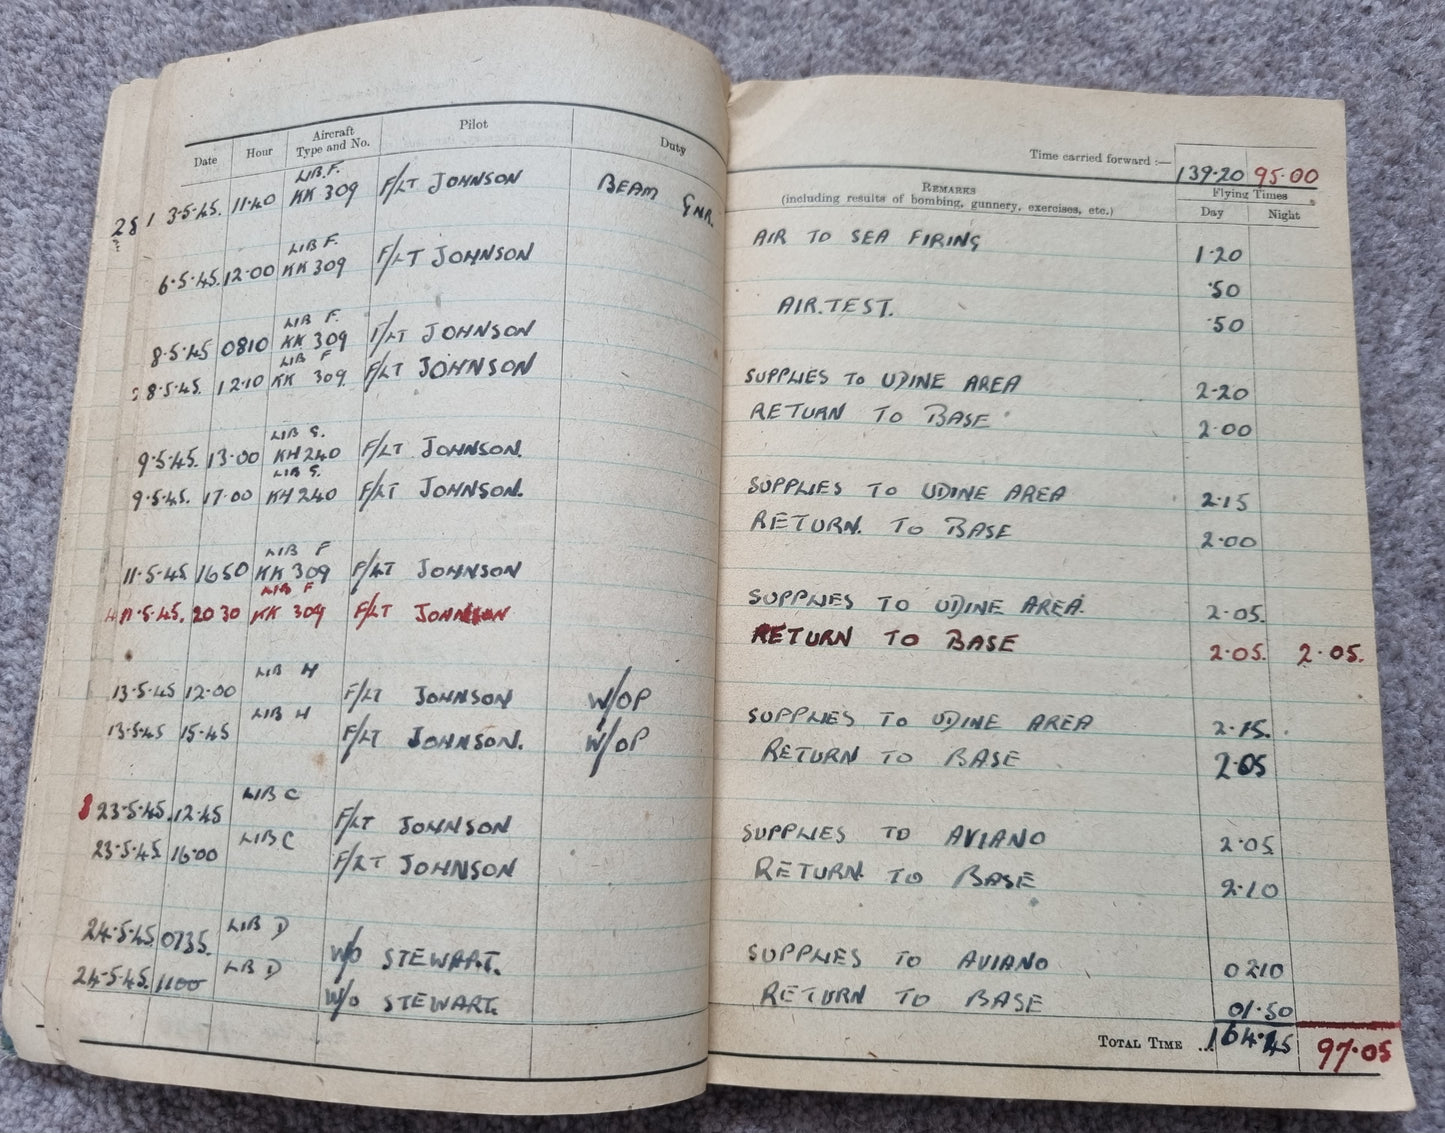 Date Hour Aircraft Type and No. Pilot Duty
LIB.F.
3·5·45. 11·40 KK 309 F/LT JOHNSON BEAM GNR.
LIB F.
6·5·45. 12·00 KK 309 F/LT JOHNSON
LIB F.
8·5·45 0810 KK 309 F/LT JOHNSON
LIB F
8·5·45. 12·10 KK 309 F/LT JOHNSON
LIB G.
9·5·45. 13·00 KH 240 F/LT JOHNSON.
LIB G.
9·5·45. 17·00 KH 240 F/LT JOHNSON.
LIB F
11·5·45 1650 KK 309 F/LT JOHNSON
LIB F
11·5·45. 2030 KK 309 F/LT JOHNSON
LIB H
13·5·45 12·00 F/LT JOHNSON W/OP
LIB H
13·5·45 15·45 F/LT JOHNSON. W/OP
LIB C
23·5·45. 12·45 F/LT JOHNSON
LIB C
23·5·45 16·00 F/LT JOHNSON
LIB D
24·5·45 0735. W/O STEWART.
LIB D
24·5·45. 1100 W/O STEWART.
Time carried forward :— 139·20 95·00
REMARKS
(including results of bombing, gunnery, exercises, etc.)
Flying Times
Day Night
AIR TO SEA FIRING 1·20
·50
AIR.TEST. ·50
SUPPLIES TO UDINE AREA 2·20
RETURN TO BASE 2·00
SUPPLIES TO UDINE AREA 2·15
RETURN. TO BASE 2·00
SUPPLIES TO UDINE AREA. 2·05.
RETURN TO BASE 2·05. 2·05.
SUPPLIES TO UDINE AREA 2·15.
RETURN TO BASE 2·05
SUPPLIES TO AVIANO 2·05
RETURN TO BASE 2·10
SUPPLIES TO AVIANO 0210
RETURN TO BASE 01·50
TOTAL TIME ... 164·45 97·05